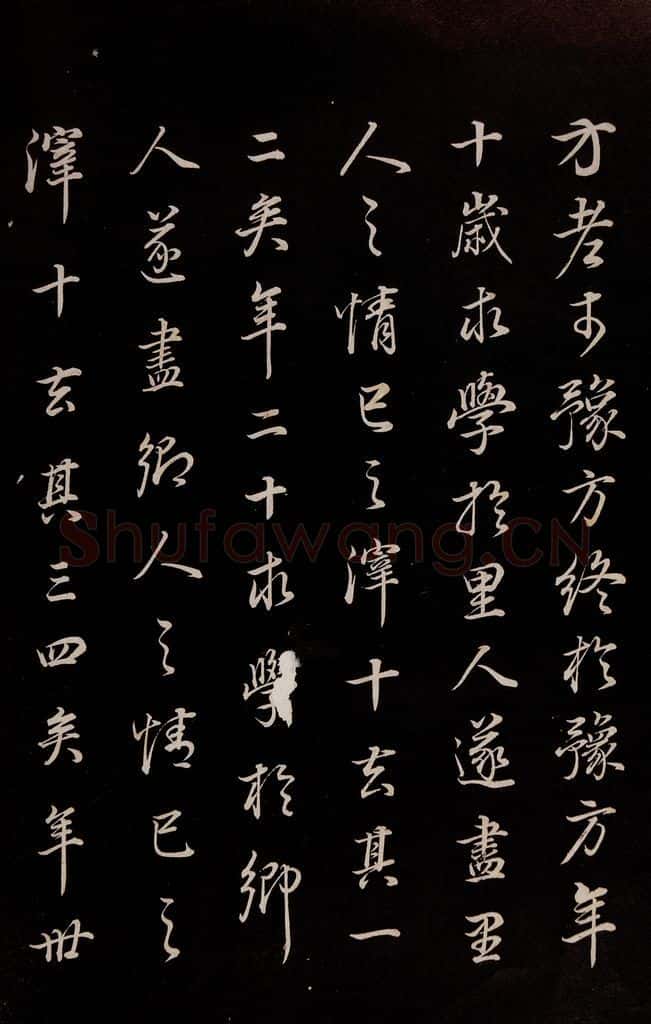 方老于豫方终於豫方年
十歲求學於里人遂盡里
人之情己之滓十去其一
二矣年二十求學於鄉
人遂盡鄉人之情己之
滓十去其三四矣年卅
Shufawang.CN